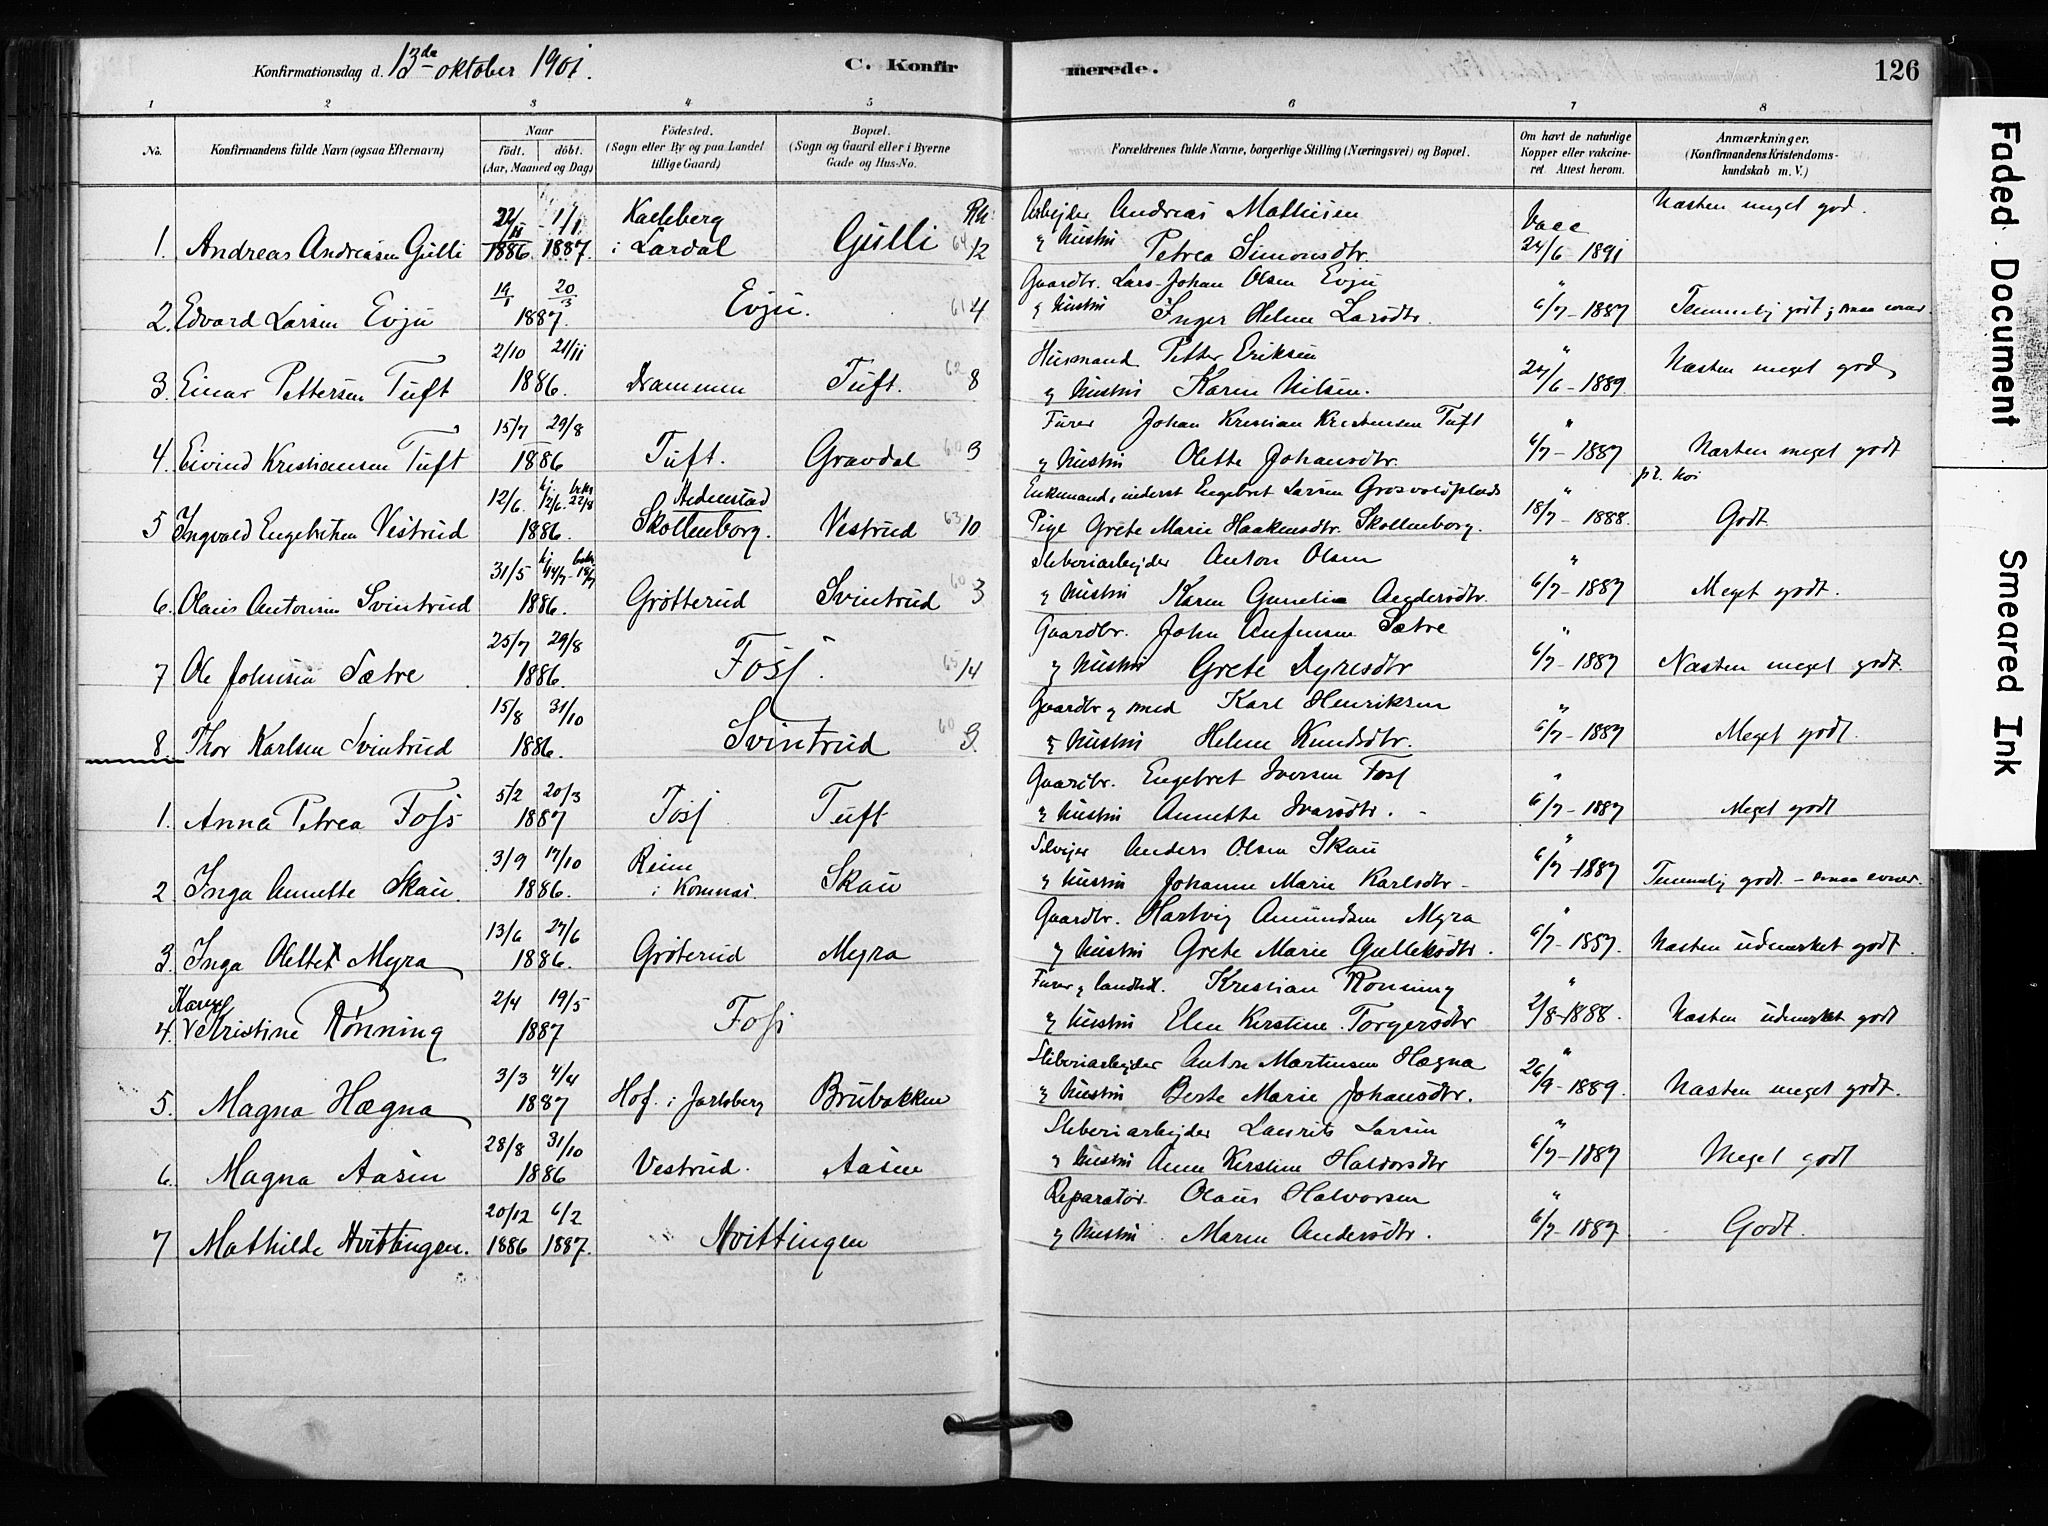 Konfirmationsdag d. 13de oktober 1901.
C. Konfirmerede.
126
1 2 3 4 5 6 7 8
No.
Konfirmandens fulde Navn (ogsaa Efternavn)
Naar
födt. döbt.
(Aar, Maaned og Dag)
Födested.
(Sogn eller By og paa Landet
tillige Gaard)
Bopæl.
(Sogn og Gaard eller i Byerne
Gade og Hus-No.
Forældrenes fulde Navne, borgerlige Stilling (Næringsvei) og Bopæl.
Om havt de naturlige
Kopper eller vakcine-
ret. Attest herom.
Anmærkninger.
(Konfirmandens Kristendoms-
kundskab m. V.)
1. Andreas Andreasen Gulli 22/11 1886 1/1 1887. i Lardal Gulli 64 12
Arbejder Andreas Mathisen
Petrea Simonsdtr.
Vacc 24/6 - 1891
Næsten meget god.
2. Edvard Larsen Evju 19/1 20/3 1887. Evju. 61 4
Gaardbr. Lars Johan Olsen Evju
Inger Helene Larsdtr.
" 6/7 - 1887
Temmelig godt; smaa evner
3. Einar Pettersen Tuft 2/10 21/11 1886. Drammen Tuft. 62 8
Husmand Petter Eriksen
Karen Nilsen.
" 24/6 - 1889.
Næsten meget god
4. Eivind Kristiansen Tuft 15/7 29/8 1886 Tuft. Gravdal 60 3
Johan Kristian Kristensen Tuft
Olette Johansdtr.
" 6/7 - 1887
Næsten meget godt
5 Ingvald Engebretsen Vestrud 12/6. hj. 12/6. bekr 22/8 1886. Hedenstad Skollenborg. Vestrud 63 10
Enkemand, inderst Engebret Larsen Grosvoldplads
Pige Grete Marie Haakensdtr. Skollenborg.
" 18/7 - 1888.
Godt
6. Olaus Antonsen Svintrud 31/5 hj. 14/7 - 18/7 1886. Grötterud Svintrud 60 3
Sliberiarbejder Anton Olsen
Karen Gunelia Andersdtr.
" 6/7 - 1887
Meget godt.
7 Ole Johnsen Sætre 25/7 29/8 1886. Foss. 65 14
Gaardbr. John Anfinsen Sætre
Grete Dyresdtr
" 6/7 - 1887
Næsten meget godt.
8. Thor Karlsen Svintrud 15/8 31/10 1886. Svintrud 60 3.
Gaardbr og smed Karl Henriksen
Helene Knudsdtr.
" 6/7 - 1887
Meget godt.
1. Anna Petrea Foss 5/2 20/3 1887 Foss Tuft
Gaardbr. Engebret Iversen Foss
Annette Ivarsdtr.
" 6/7 - 1887
Meget godt
2 Inga Annette Skau. 3/9 17/10 1886. i Komnæs. Skau
Selvejer Anders Olsen Skau
Johanne Marie Karlsdtr
" 6/7 - 1887
Temmelig godt - smaa evner.
3. Inga Olette Myra 13/6 27/6 1886. Gröterud Myra
Gaardbr. Hartvig Amundsen Myra
Grete Marie Gulleksdtr.
" 6/7 - 1887.
Næsten udmerket godt.
4. Kristine Rönning 2/4 19/5 1887 Foss
Kristian Rönning
Elen Kirstine Torgersdtr
" 2/8 - 1888.
Næsten udmerket godt
5. Magna Hægna 3/3 4/4 1887 Hof i Jarlsberg Brubakken
Sliberiarbejder Anton Martinsen Hægna
Berte Marie Johansdtr.
" 26/9 - 1889.
Næsten meget godt.
6. Magna Aasen 28/8 31/10 1886 Vestrud. Aasen
Sliberiarbejder Laurits Larsen
Anne Kirstine Halvorsdtr
" 6/7 - 1887
Meget godt
7 Mathilde Hvittingen. 20/12 1886 6/2 1887. Hvittingen
Reparatör Olaus Halvorsen
Maren Andersdtr.
" 6/7 - 1887.
Godt.
Faded Document
Smeared Ink